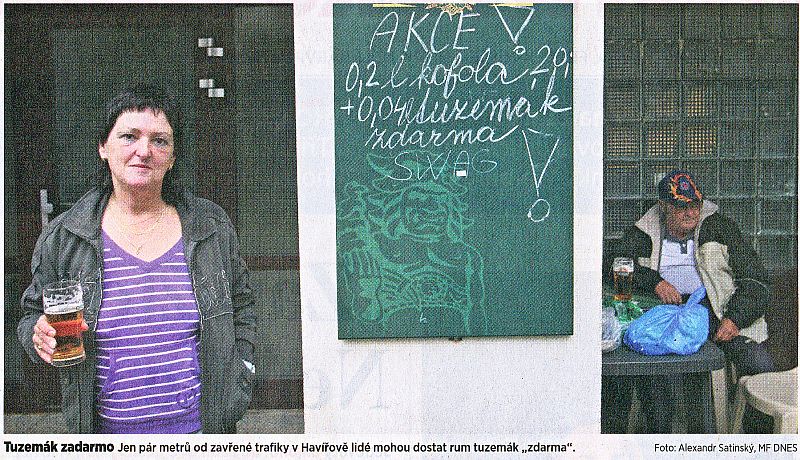 AKCE!
0,2 l kofola 20,-
+0,04 l tuzemák
zdarma!
SWAG
Tuzemák zadarmo Jen pár metrů od zavřené trafiky v Havířově lidé mohou dostat rum tuzemák „zdarma“.
Foto: Alexandr Satinský, MF DNES